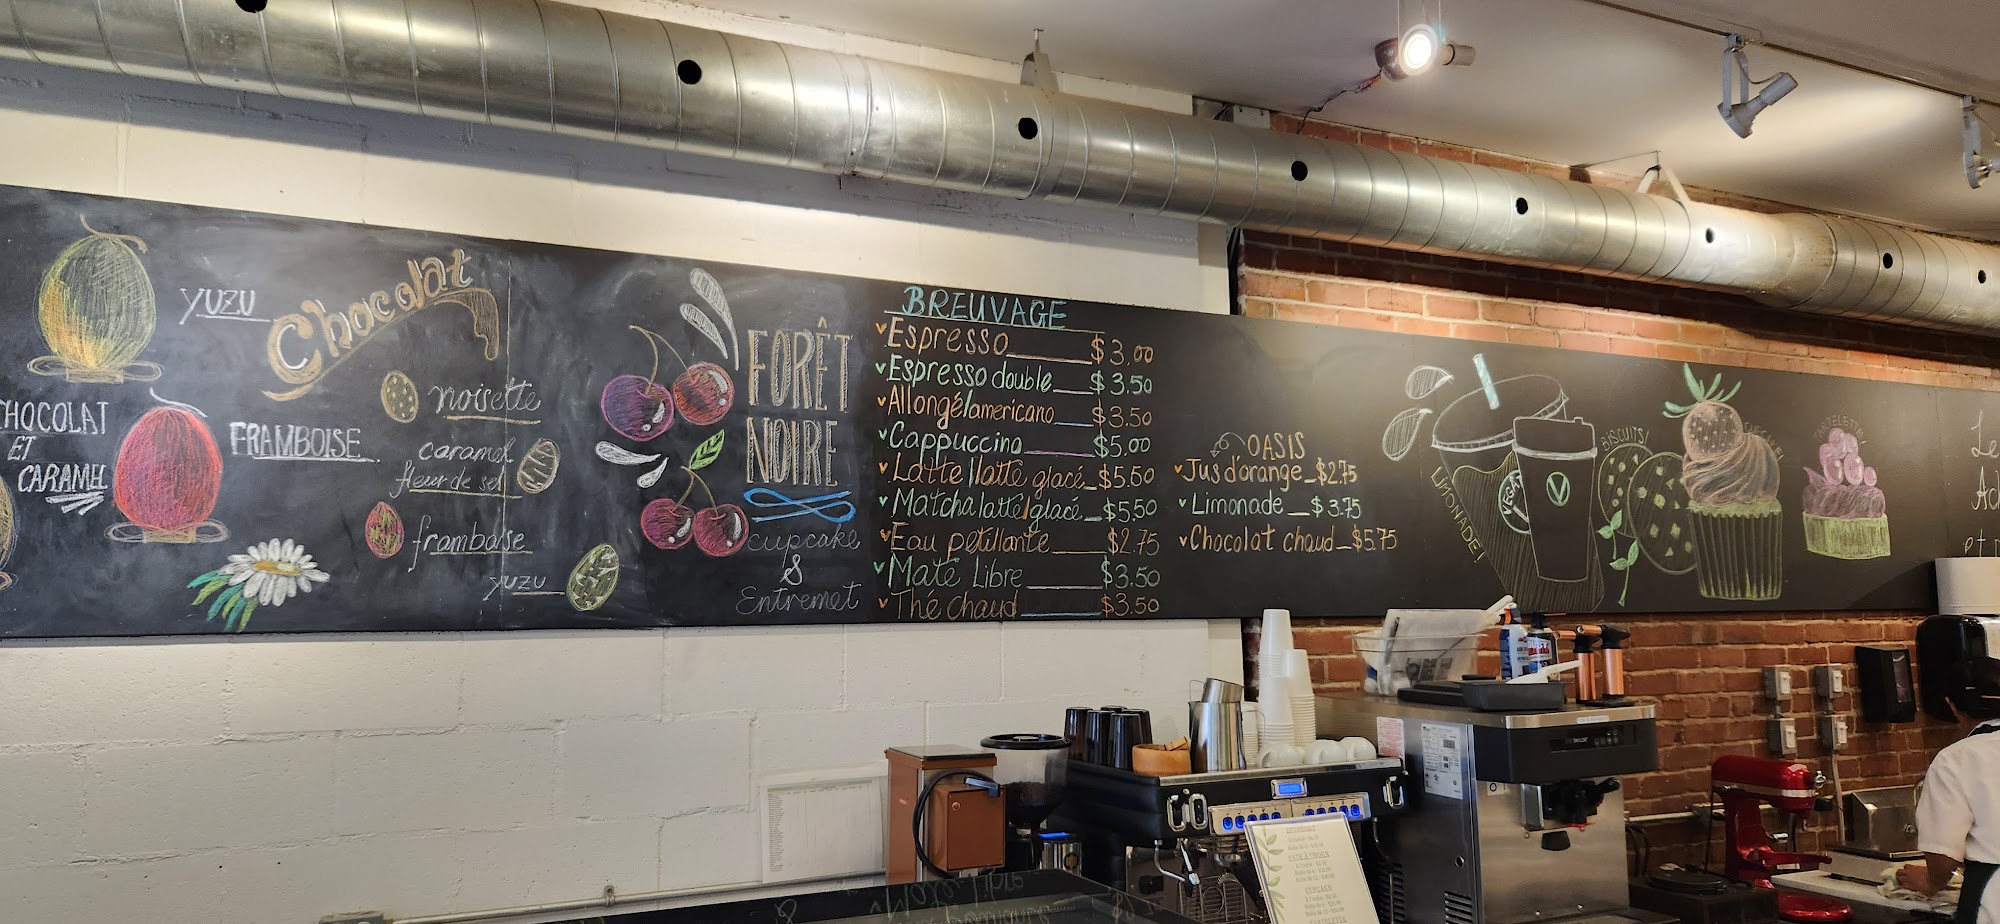 CHOCOLAT
ET
CARAMEL
YUZU
Chocolat
FRAMBOISE
noisette
caramel
fleur de sel
framboise
YUZU
FORÊT
NOIRE
cupcake
&
Entremet
BREUVAGE
Espresso $3.00
Espresso double $3.50
Allongé/americano $3.50
Cappuccino $5.00
Latte/latte glacé $5.50
Matcha latte/glacé $5.50
Eau pétillante $2.75
Maté Libre $3.50
Thé chaud $3.50
OASIS
Jus d'orange $2.75
Limonade $3.75
Chocolat chaud $5.75
LIMONADE!
VEGAN
V
BISCUITS!
CUPCAKE